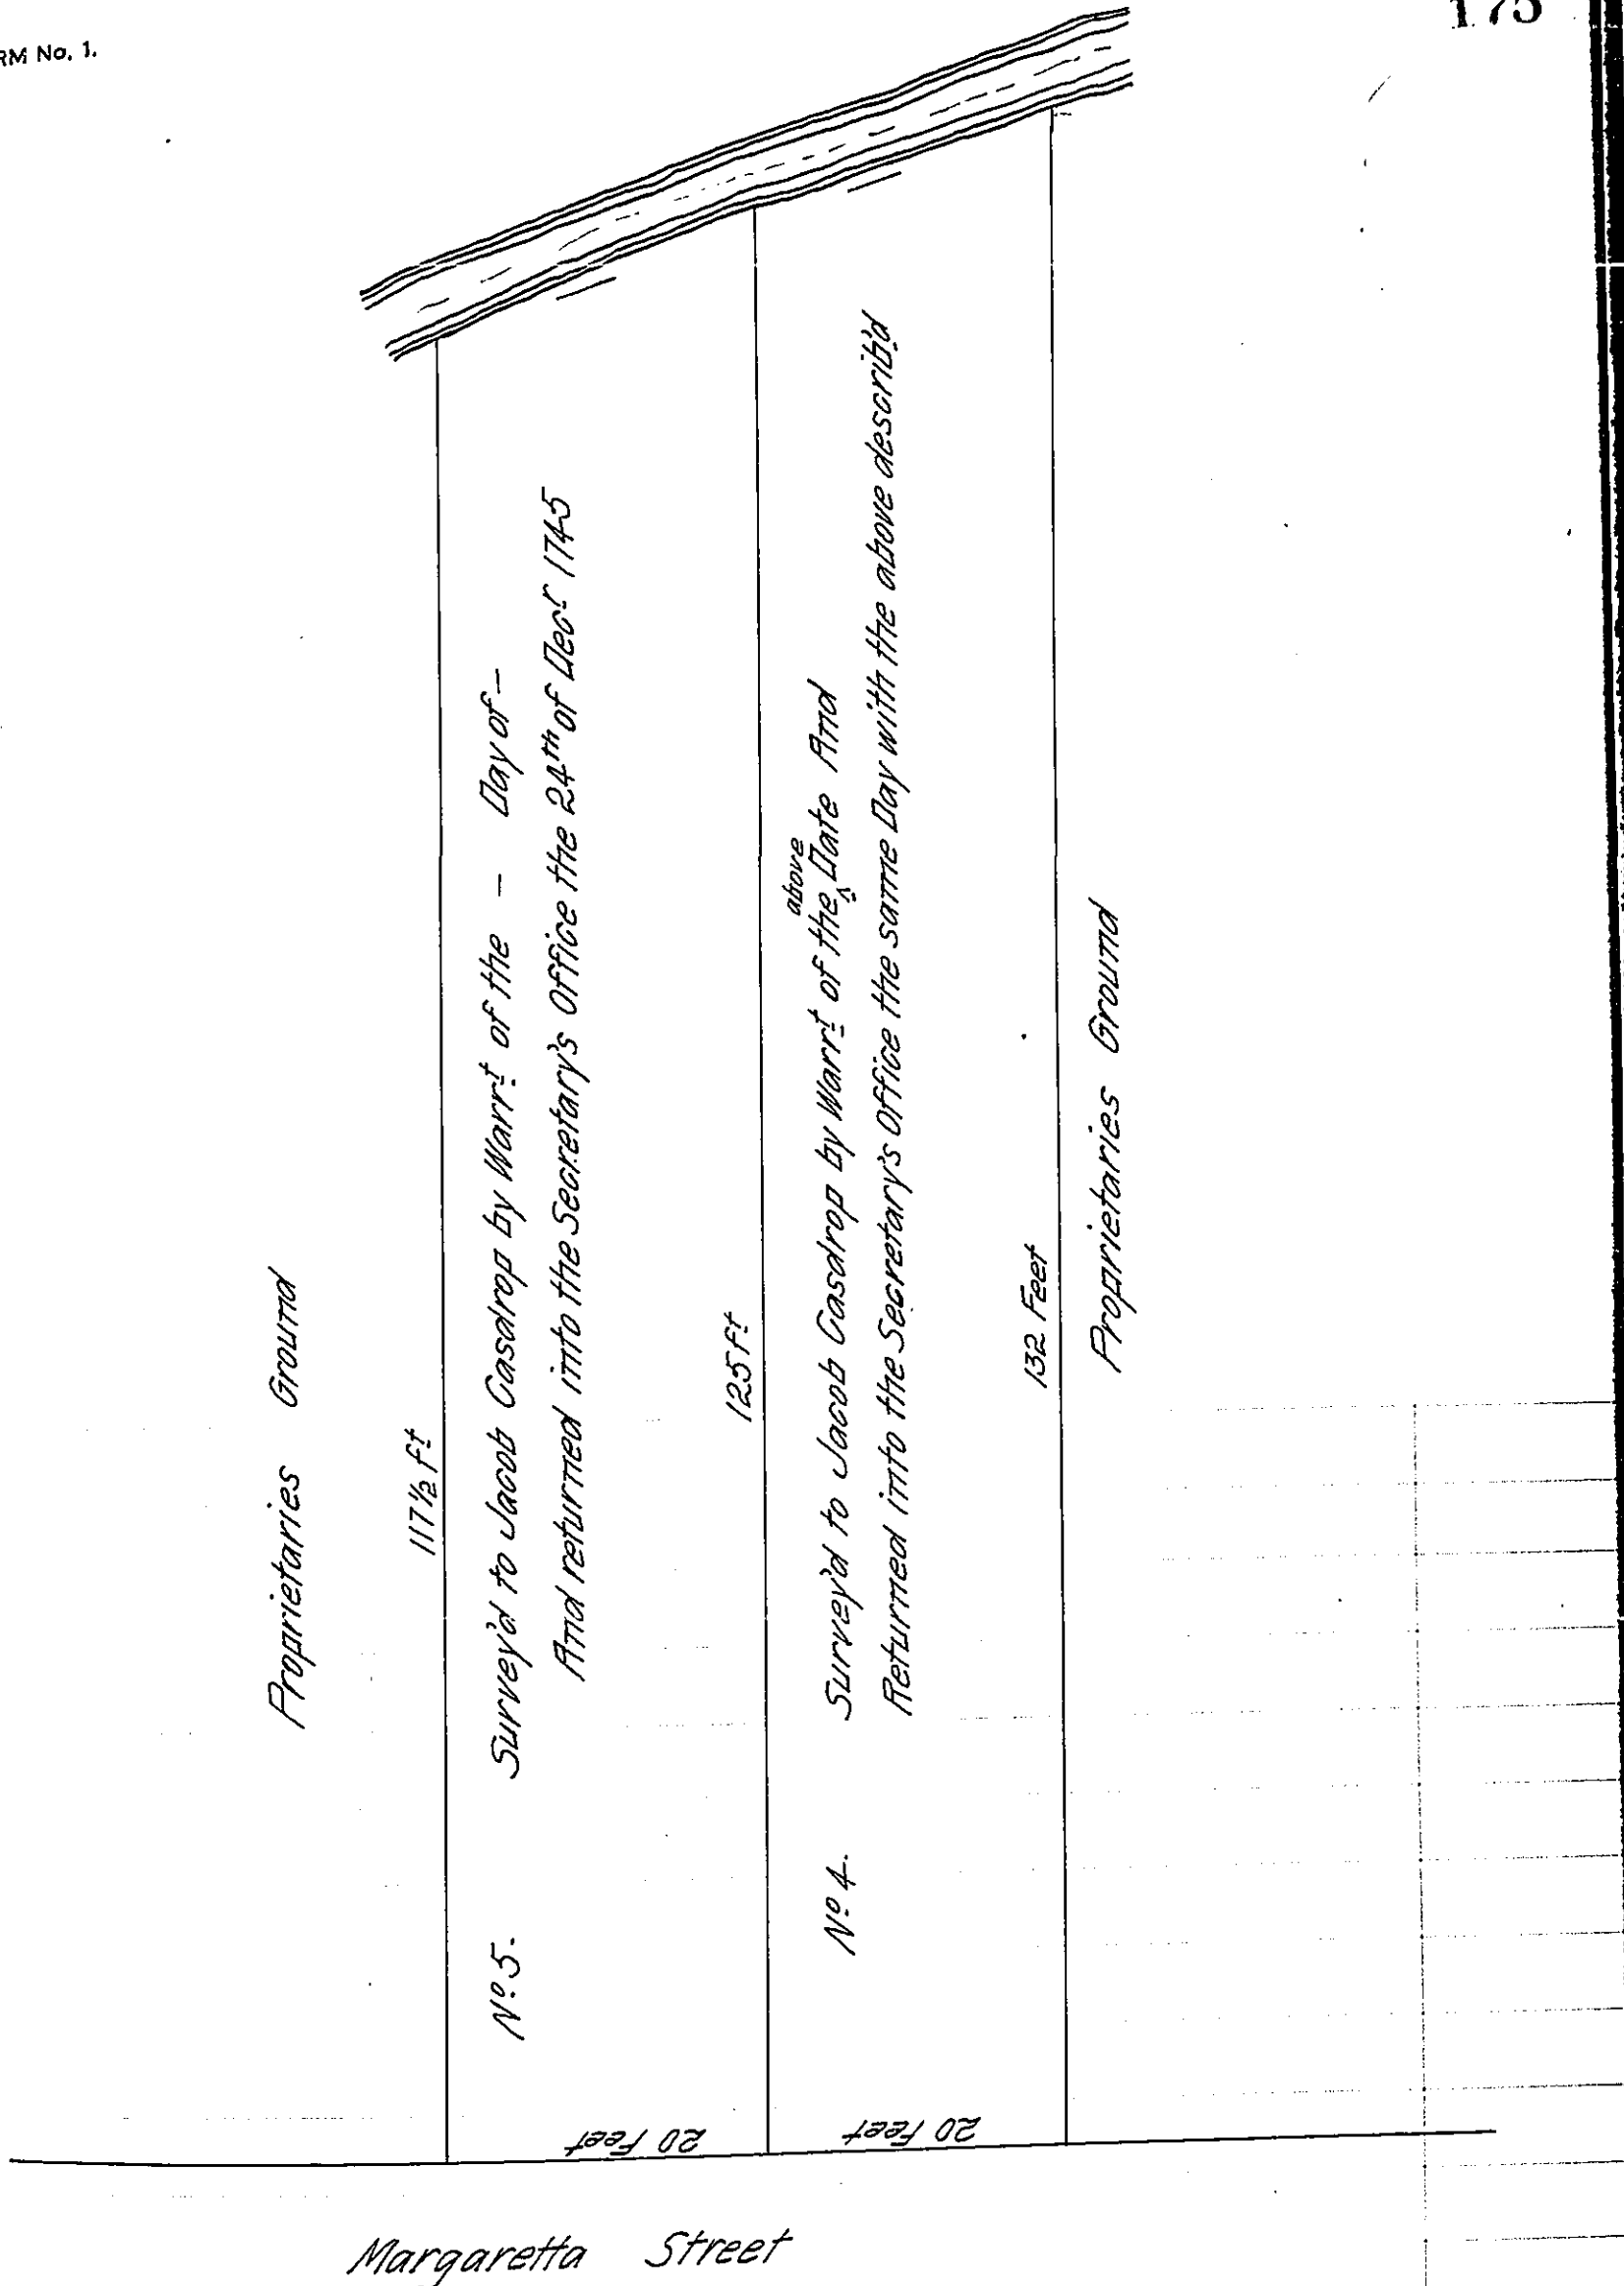 175
RM No. 1.
Proprietaries Ground
117½ Ft
Survey'd to Jacob Casdrop by Warrt of the – Day of –
And returned into the Secretary's Office the 24th of Decr 1745
No 5.
125 Ft
above
Survey'd to Jacob Casdrop by Warrt of the ^ Date And
Returned into the Secretary's Office the same Day with the above describ'd
No 4.
132 Feet
Proprietaries Ground
20 Feet
20 Feet
Margaretta Street